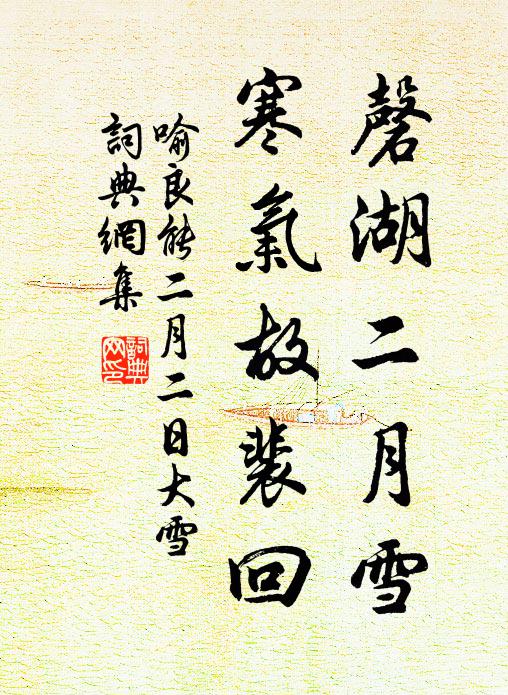 磬湖二月雪
寒氣故裴回
喻良能二月二日大雪
詞典網集
詞典网印